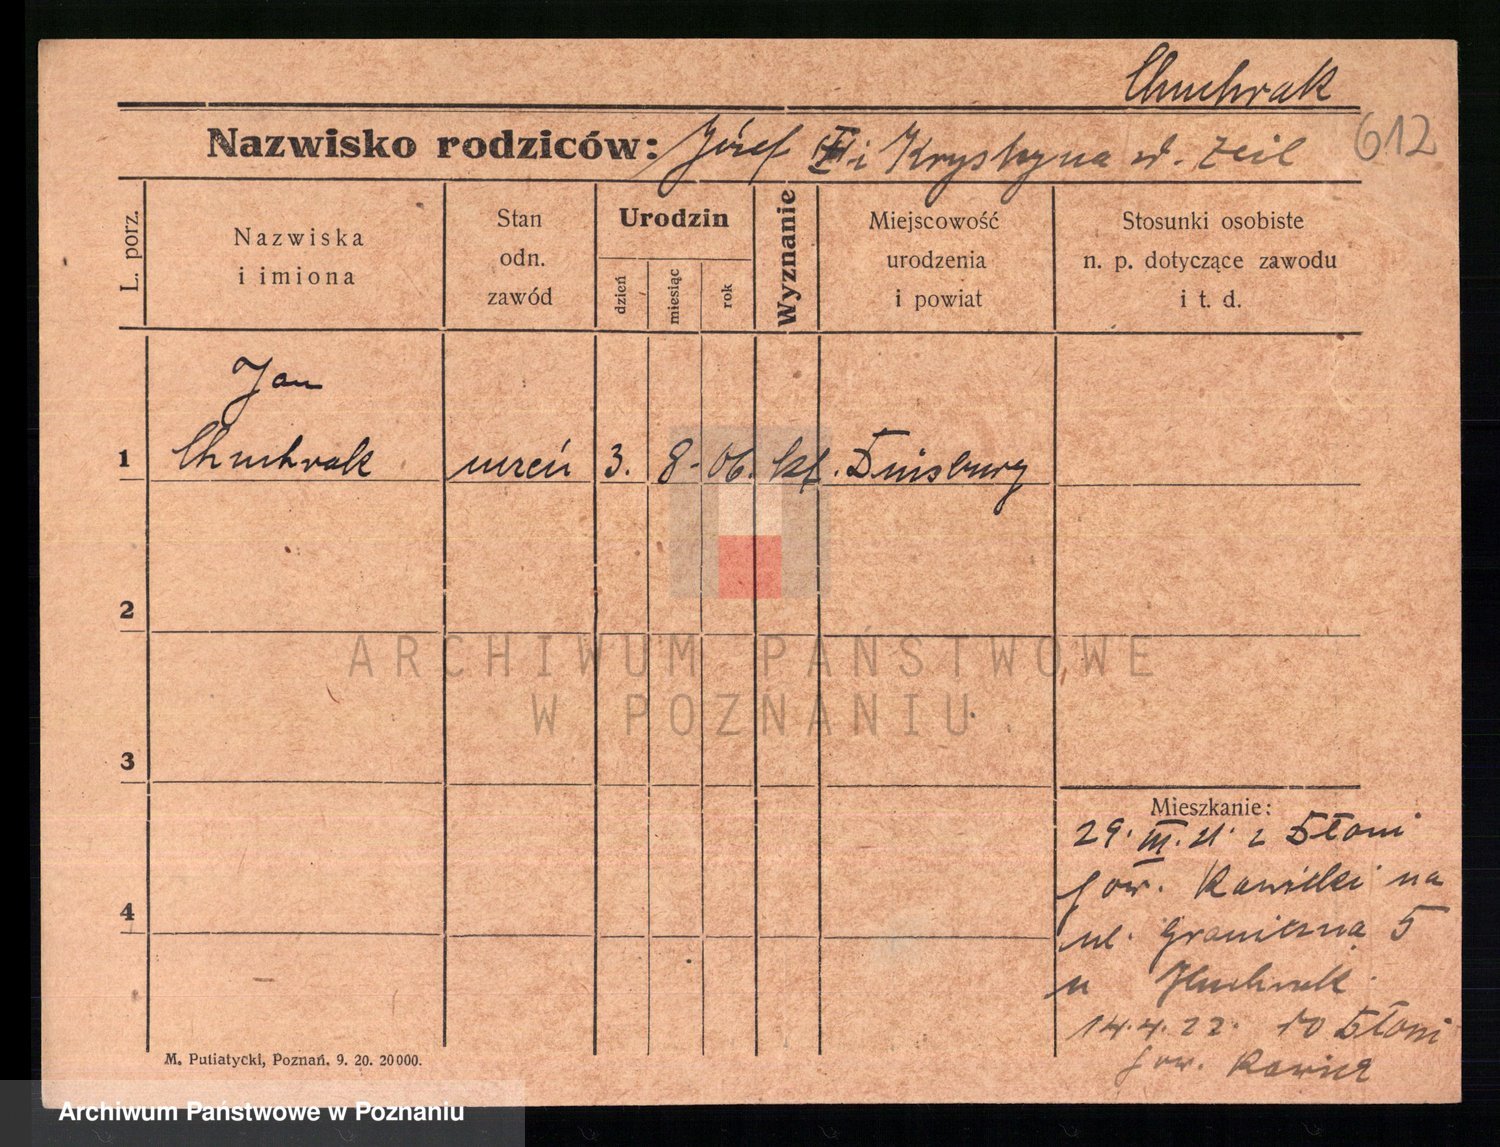 Chuchrak
Nazwisko rodziców: Józef i Krystyna zd. Zeil
612
L. porz.
Nazwiska
i imiona
Stan
odn.
zawód
Urodzin
dzień
miesiąc
rok
Wyznanie
Miejscowość
urodzenia
i powiat
Stosunki osobiste
n. p. dotyczące zawodu
i t. d.
Jan
1 Chuchrak uczeń 3. 8. 06. kt. Duisburg
2
3
4
Mieszkanie:
29. III. 21. z Słoni
pow. Rawicki na
ul. Graniczną 5
u Chuchrak.
14.4.22. do Słoni
pow. Rawicz
M. Putiatycki, Poznań. 9. 20. 20000.
ARCHIWUM PAŃSTWOWE
W POZNANIU
Archiwum Państwowe w Poznaniu